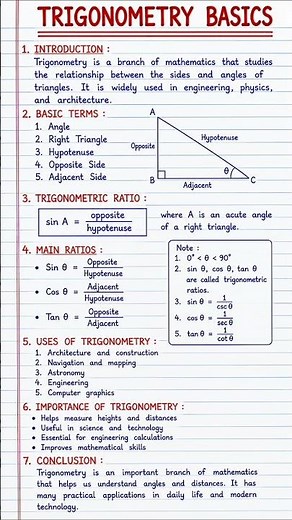 TRIGONOMETRY BASICS
1. INTRODUCTION :
Trigonometry is a branch of mathematics that studies
the relationship between the sides and angles of
triangles. It is widely used in engineering, physics,
and architecture.
2. BASIC TERMS :
1. Angle
2. Right Triangle
3. Hypotenuse
4. Opposite Side
5. Adjacent Side
A
Opposite
Hypotenuse
θ
B
Adjacent
C
3. TRIGONOMETRIC RATIO :
sin A = opposite / hypotenuse
where A is an acute angle
of a right triangle.
4. MAIN RATIOS :
• Sin θ = Opposite / Hypotenuse
• Cos θ = Adjacent / Hypotenuse
• Tan θ = Opposite / Adjacent
Note :
1. 0° < θ < 90°
2. sin θ, cos θ, tan θ
are called trigonometric
ratios.
3. sin θ = 1 / csc θ
4. cos θ = 1 / sec θ
5. tan θ = 1 / cot θ
5. USES OF TRIGONOMETRY :
1. Architecture and construction
2. Navigation and mapping
3. Astronomy
4. Engineering
5. Computer graphics
6. IMPORTANCE OF TRIGONOMETRY :
• Helps measure heights and distances
• Useful in science and technology
• Essential for engineering calculations
• Improves mathematical skills
7. CONCLUSION :
Trigonometry is an important branch of mathematics
that helps us understand angles and distances. It has
many practical applications in daily life and modern
technology.